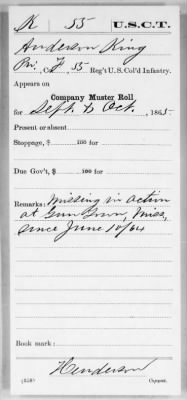 K 55 U.S.C.T.
Anderson King
Pvt., Co. F, 55 Reg't U.S. Col'd Infantry.
Appears on
Company Muster Roll
for Sept. & Oct., 1865
Present or absent
Stoppage, $ 100 for
Due Gov't, $ 100 for
Remarks: Missing in action
at Gun Town, Miss,
since June 10/64
Book mark:
Henderson
(358) Copyist.